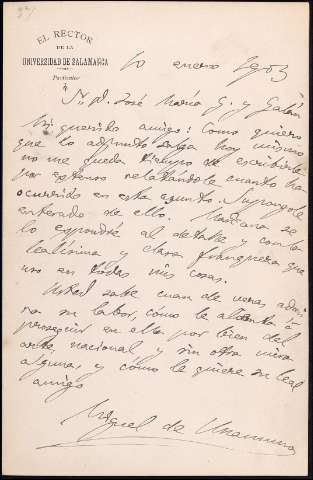 EL RECTOR
DE LA
UNIVERSIDAD DE SALAMANCA
Particular
10 enero 1903
Sr. D. José María G. y Galán
Mi querido amigo: Como quiero
que lo adjunto salga hoy mismo
no me queda tiempo de escribirle
por extenso relatándole cuanto ha
ocurrido en este asunto. Supongole
enterado de ello. Mañana se
lo expondré al detalle y con la
lealísima y clara franqueza que
uso en todas mis cosas.
Usted sabe cuan de veras admi-
ra su labor, cómo le alienta á
proseguir en ella por bien del
arte nacional y sin otra mira
alguna, y cómo le quiere su leal
amigo
Miguel de Unamuno